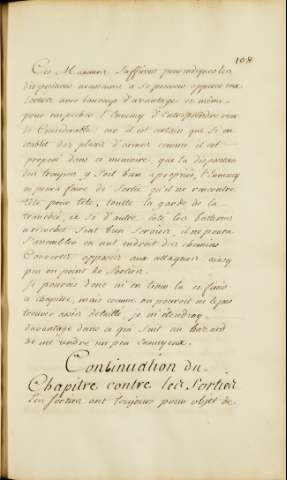 108
Ces Maximes suffisent pour indiquer les
dispositions necessaires a se pouvoir opposer aux
sorties avec baucoup d'avantage et même
pour empecher l'Ennemy d'Entreprendre rien
de Considerable; car il est certain que si on
établit des places d'armes comme il est
proposé dans ce memoire, que la disposition
des trouppes y soit bien apropriée, l'Ennemy
ne poura faire de Sortie qu'il ne rencontre
tête pour tête, toutte la garde de la
tranchée, et si d'autre côté les batteries
a ricochet sont bien servies, il ne poura
s'assembler en nul endroit des chemins
Couverts opposéz aux attaques ainsy
peu ou point de Sorties.
Je pourois donc m'en tenir la et finir
ce chapitre, mais comme on pouroit ne le pas
trouver assés détaillé je m'étendray
davantage dans ce qui suit au hazard
de me rendre un peu ennuyeux.
Continuation du
Chapitre contre les Sorties
Les sorties ont toujours pour objet de